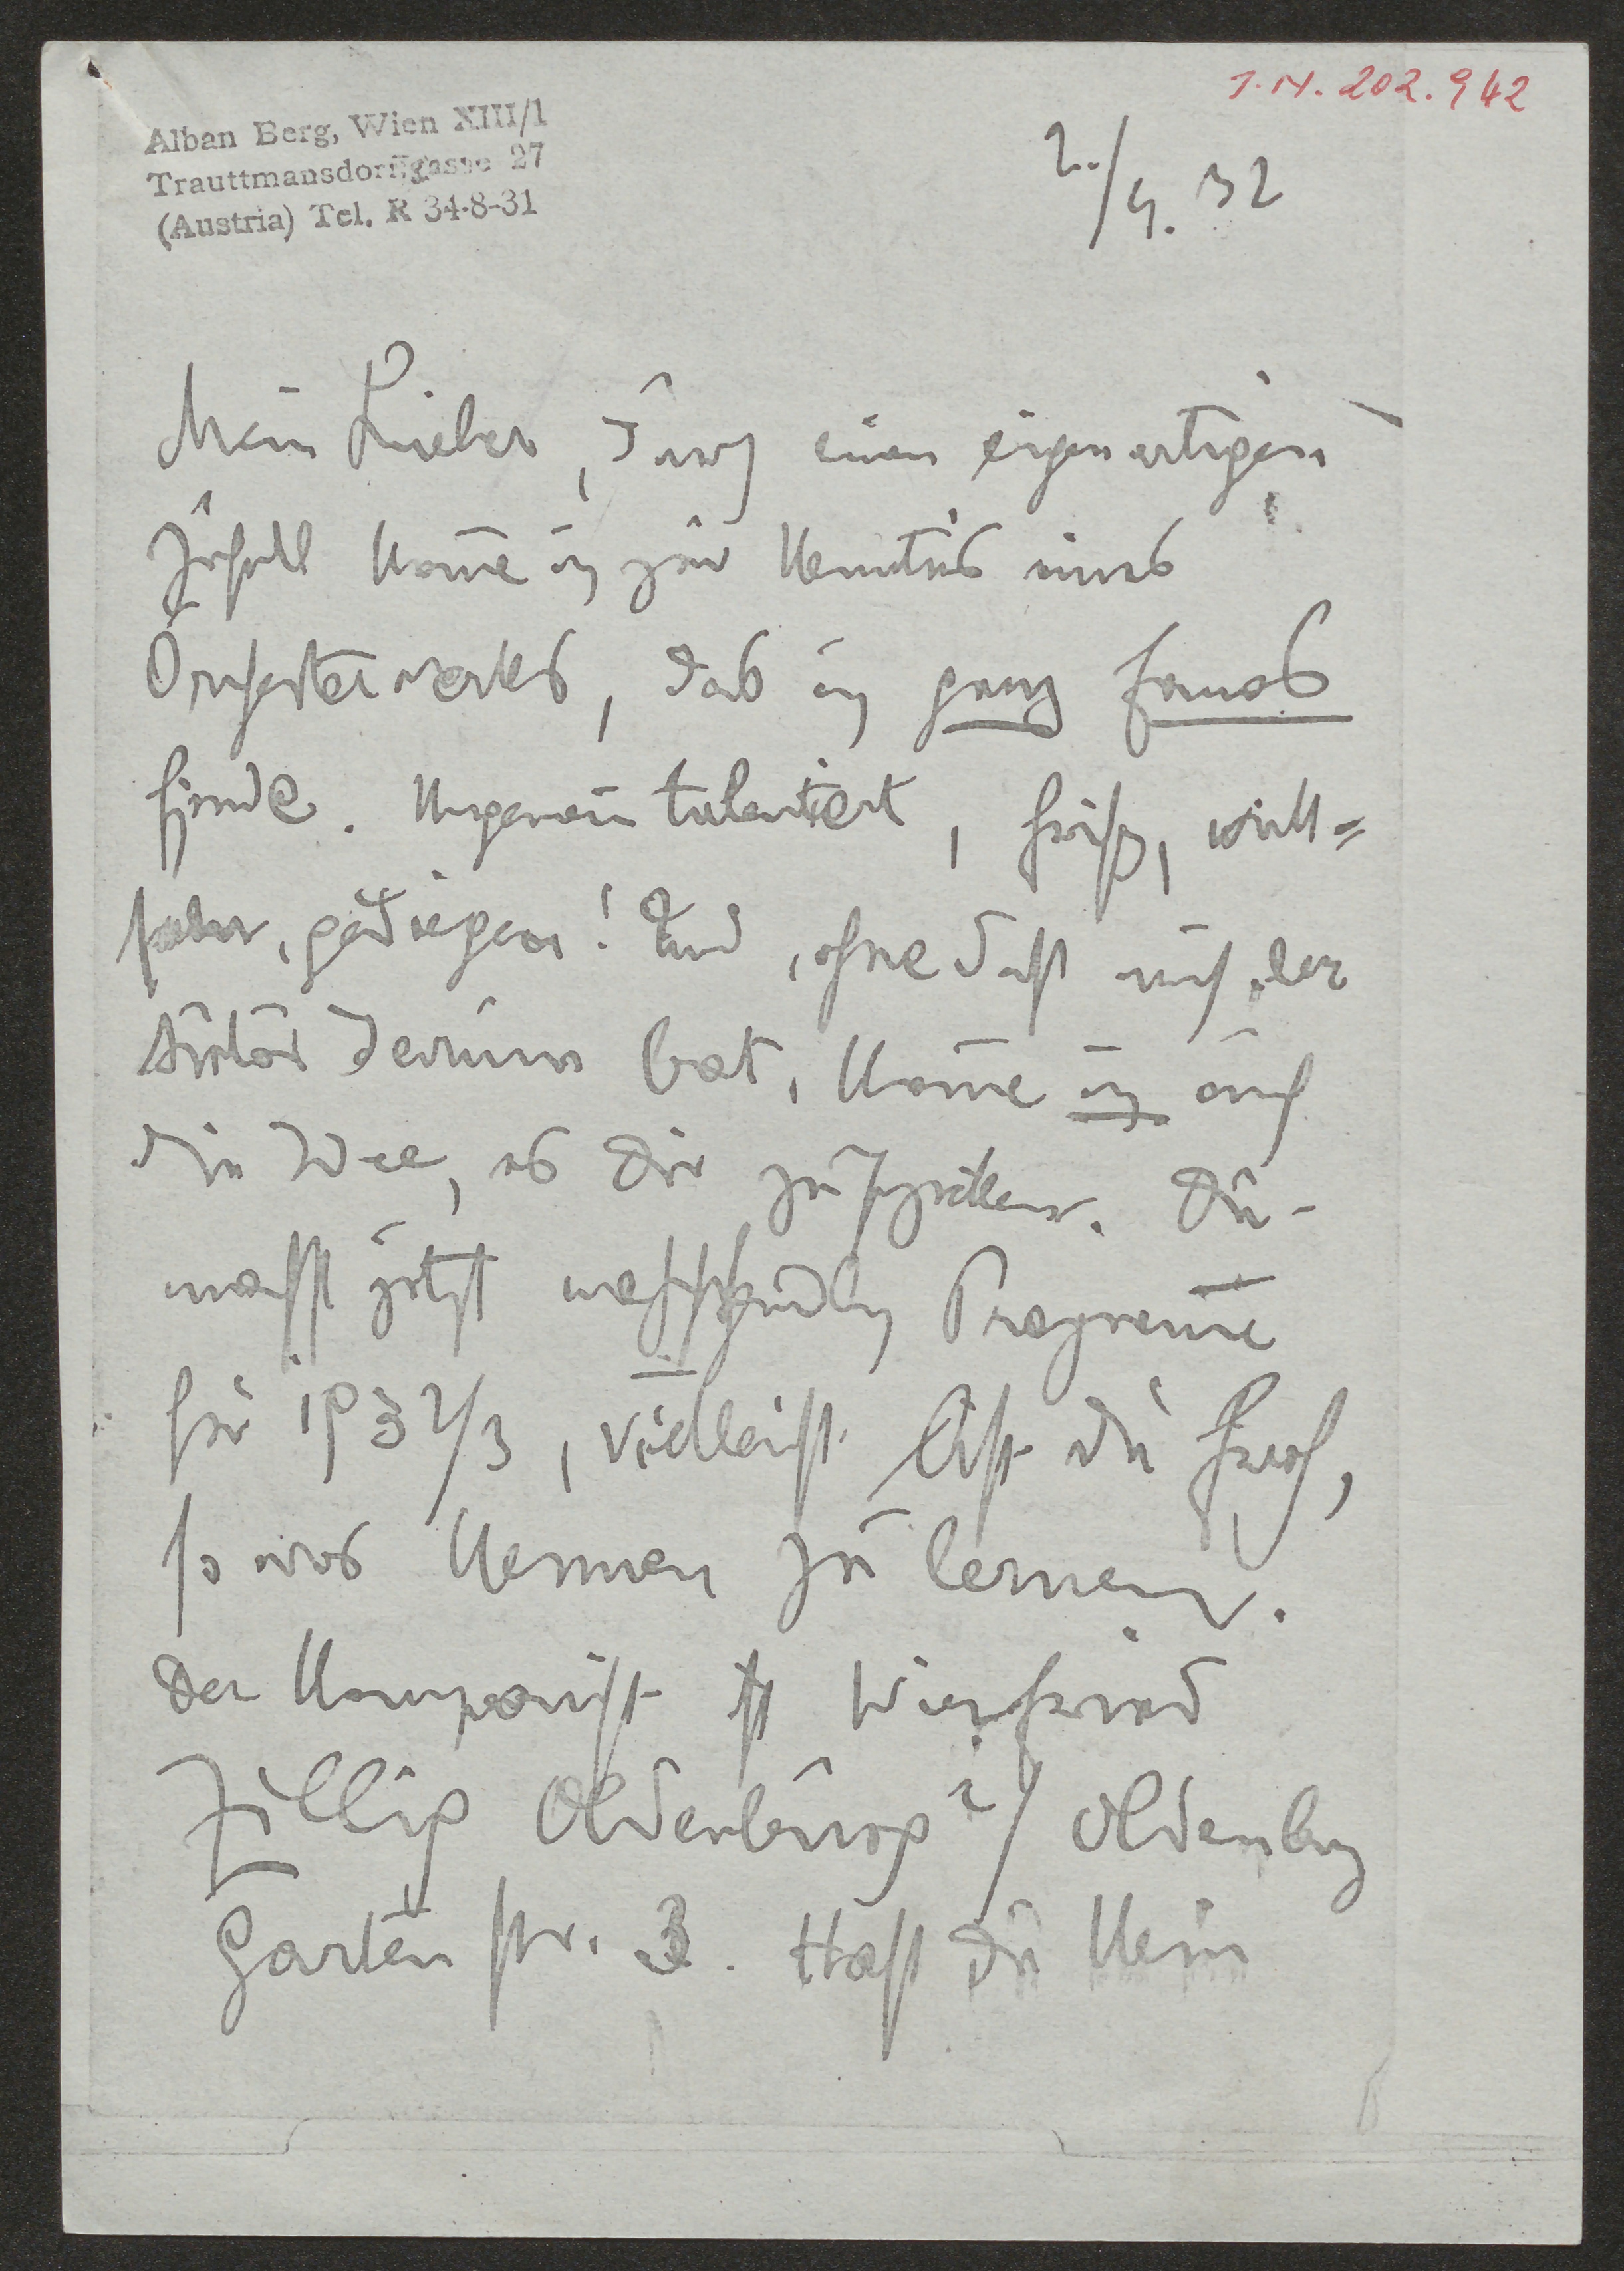 I.N. 202.942
Alban Berg, Wien XIII/1
Trauttmansdorffgasse 27
(Austria) Tel. R 34-8-31
2./4. 32
Mein Lieber, durch einen eigenartigen
Zufall kom̅e ich zur Kenntnis eines
Orchesterwerks, das ich ganz famos
finde. Ungemein talentiert, frisch, wirk=
sam, gediegen! Und, ohne daß mich der
Autor darum bat, kom̅e ich auf
die Idee, es Dir zu schicken. Du
machst jetzt wahrscheinlich Program̅e
für 1932/3, vielleicht bist Du froh,
so was kennen zu lernen.
Der Komponist ist Winfried
Zillig Oldenburg i/ Oldenburg
Gartenstr. 3. Hast Du kein